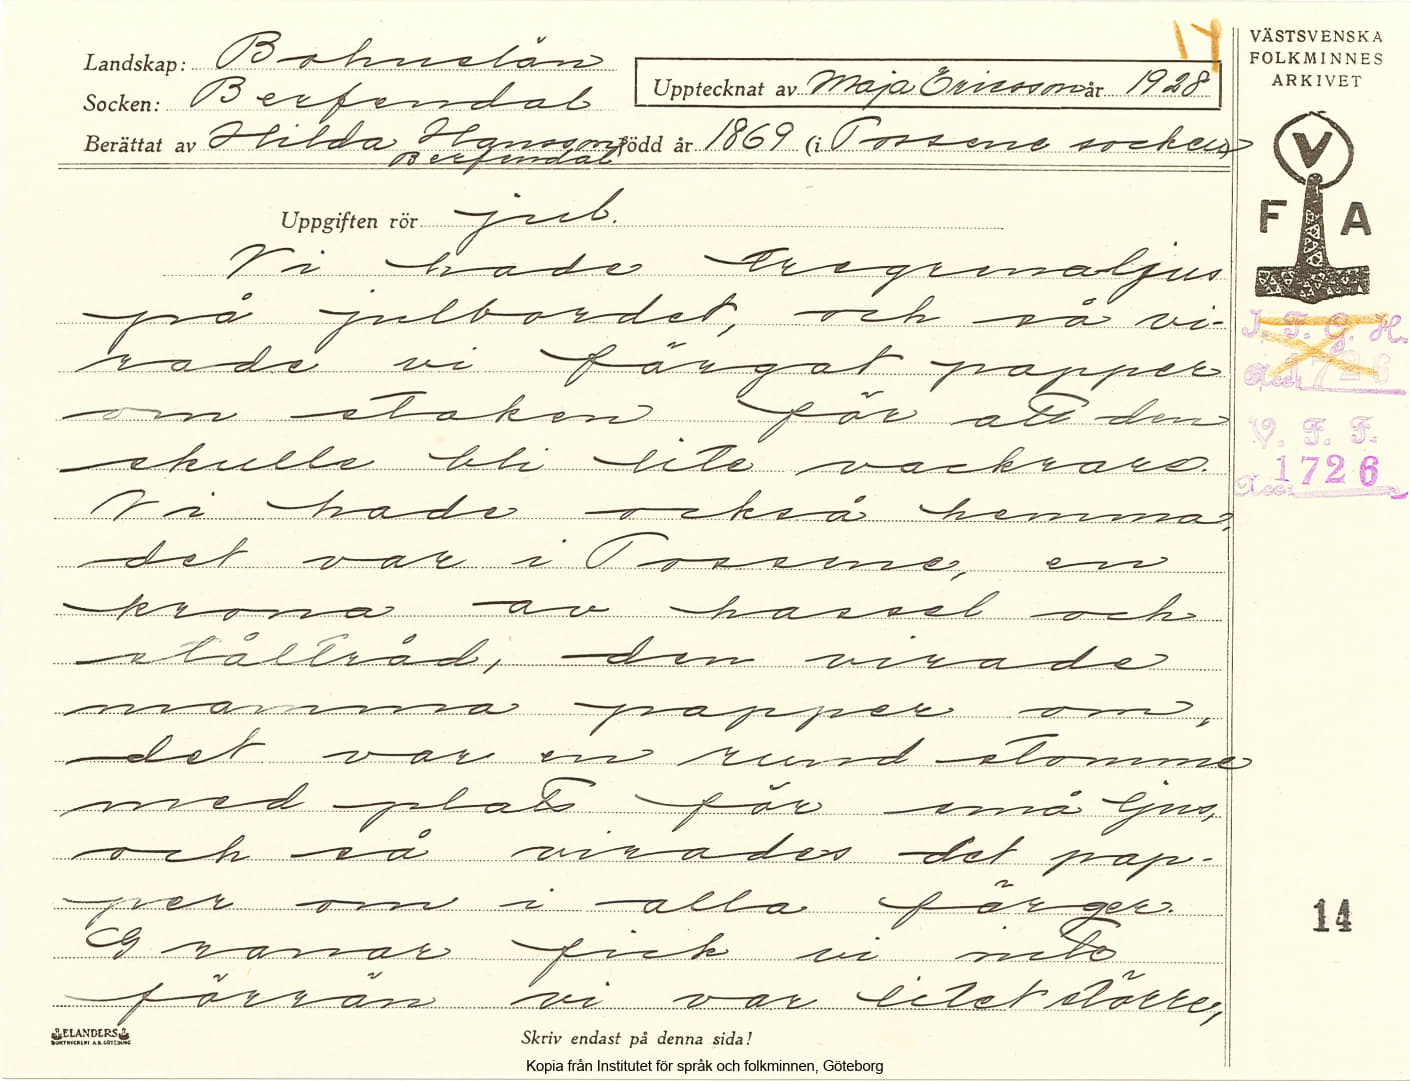 17
VÄSTSVENSKA
FOLKMINNES
ARKIVET
Landskap: Bohuslän
Socken: Berfendal
Upptecknat av Maja Ericsson år 1928
Berättat av Hilda Hansson född år 1869 (i Tossene socken)
Berfendal
V
F A
Uppgiften rör jul.
Vi hade tregrenaljus
på julbordet, och så vi-
rade vi färgat papper
om staken för att den
skulle bli lite vackrare.
Vi hade också hemma,
det var i Tossene, en
krona av hassel och
ståltråd, den virade
mamma papper om,
det var en rund stomme
med plats för små ljus,
och så virades det pap-
per om i alla färger.
Granar fick vi inte
förrän vi var litet större,
I. F. G. H.
Acc. 1726
V. F. F.
Acc. 1726
14
ELANDERS
BOKTRYCKERI A.B. GÖTEBORG
Skriv endast på denna sida!
Kopia från Institutet för språk och folkminnen, Göteborg